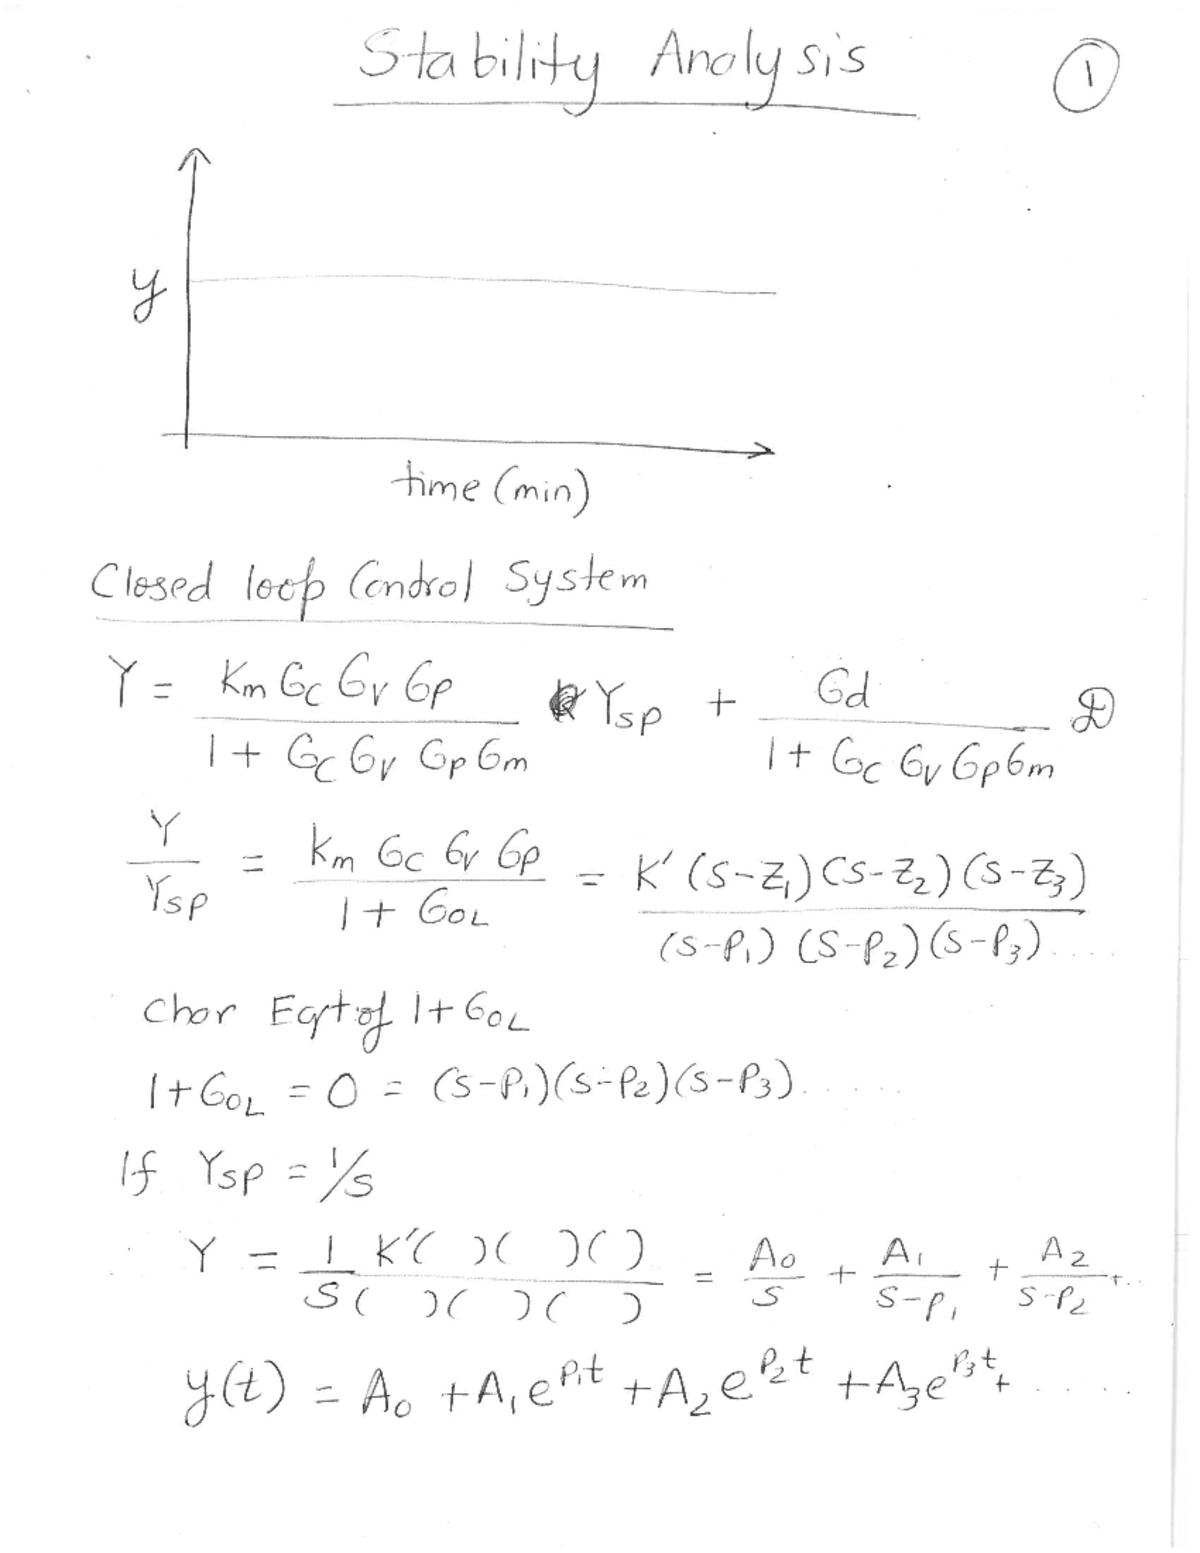 Stability Analysis
①
y
time (min)
Closed loop Control System
Y = Km Gc Gv Gp / 1 + Gc Gv Gp Gm Ysp + Gd / 1 + Gc Gv Gp Gm D
Y / Ysp = Km Gc Gv Gp / 1 + GOL = K' (s-Z1) (s-Z2) (s-Z3) / (s-P1) (s-P2) (s-P3) ....
Char Eqt of 1 + GOL
1 + GOL = 0 = (s-P1)(s-P2)(s-P3) ......
If Ysp = 1/s
Y = 1 K'( )( )( ) / S ( )( )( ) = A0 / S + A1 / S-P1 + A2 / S-P2 + ..
y(t) = A0 + A1 e^P1t + A2 e^P2t + A3 e^P3t + .....